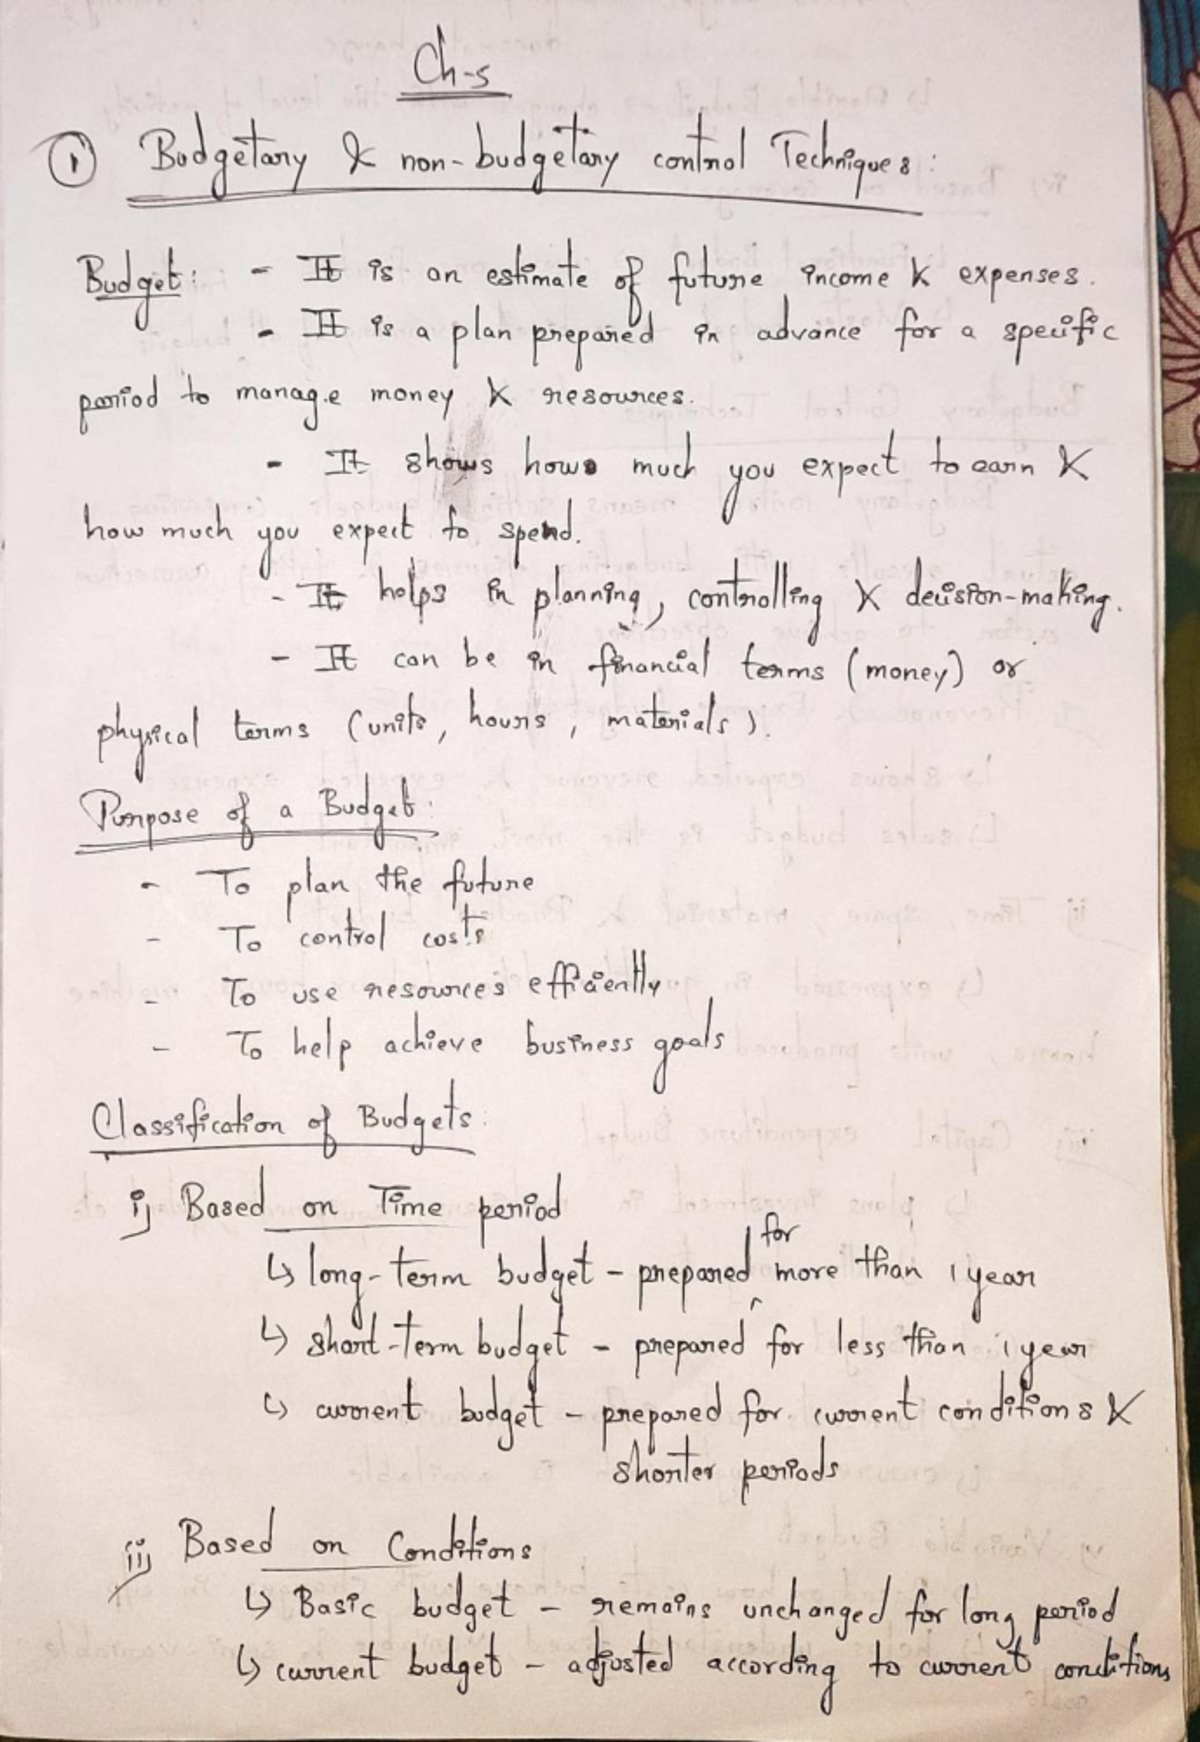 Ch-5
① Budgetary & non-budgetary control Techniques:
Budget: - It is an estimate of future income & expenses.
- It is a plan prepared in advance for a specific
period to manage money & resources.
- It shows how much you expect to earn &
how much you expect to spend.
- It helps in planning, controlling & decision-making.
- It can be in financial terms (money) or
physical terms (units, hours, materials).
Purpose of a Budget:
- To plan the future
- To control costs
- To use resources efficiently
- To help achieve business goals
Classification of Budgets:
i) Based on Time period
↳ long-term budget - prepared for more than 1 year
↳ short-term budget - prepared for less than 1 year
↳ current budget - prepared for current conditions &
shorter periods
ii) Based on Conditions
↳ Basic budget - remains unchanged for long period
↳ current budget - adjusted according to current conditions